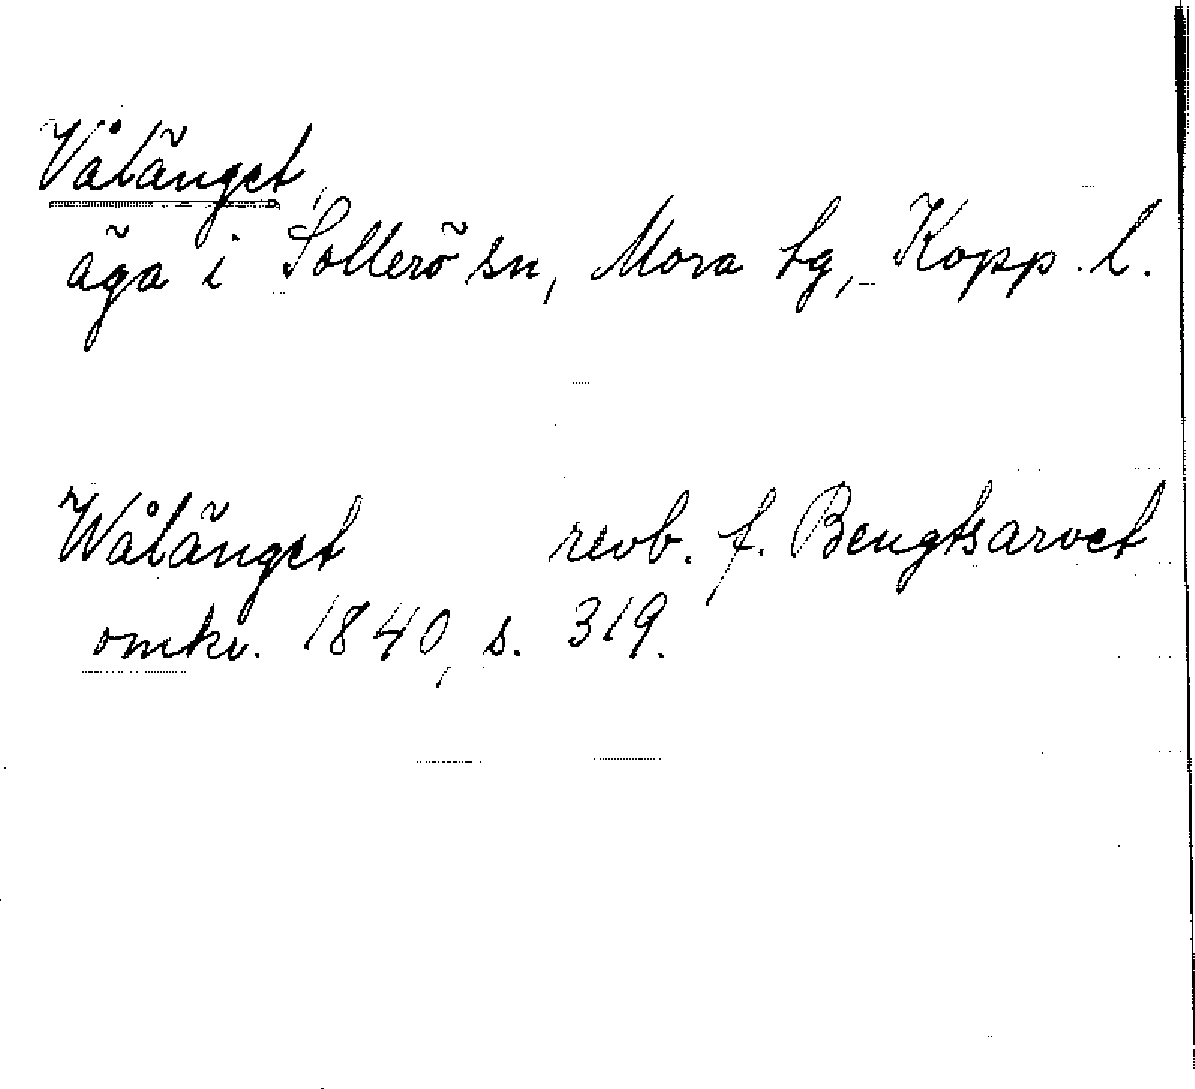 Vålänget
äga i Sollerö sn, Mora tg, Kopp. l.
Wålänget revb. f. Bengtsarvet
omkr. 1840, s. 319.